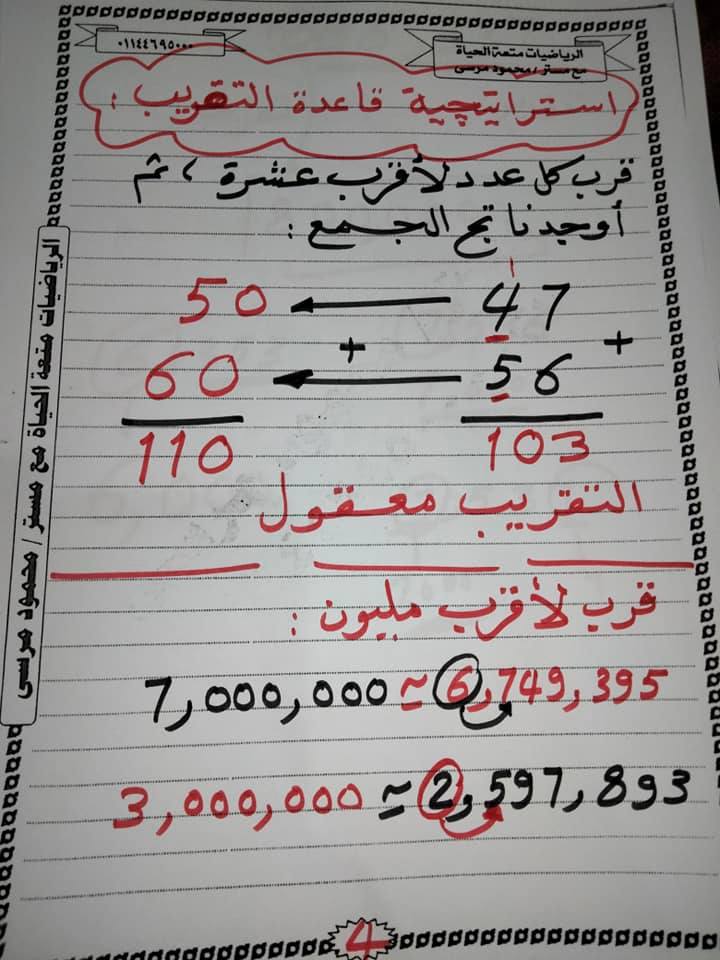 الرياضيات متعة الحياة
مع مستر / محمود مرسى
٠١١٤٤٦٩٥٠٠٠
استراتيچية قاعدة التقريب :
قرب كل عدد لأقرب عشرة ، ثم
أوجد ناتج الجمع :
1
47 ← 50
+ +
56 ← 60
103 110
التقريب معقول
قرب لأقرب مليون :
6,749,395 ≈ 7,000,000
2,597,893 ≈ 3,000,000
4
الرياضيات متعة الحياة مع مستر / محمود مرسى